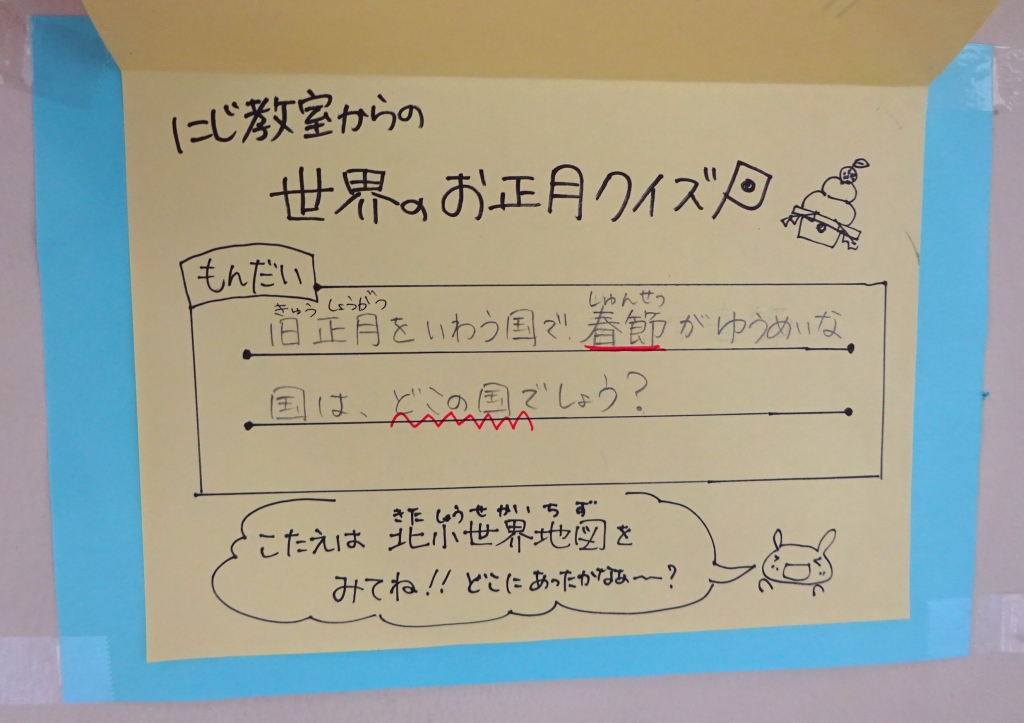 にじ教室からの
世界のお正月クイズ
もんだい
きゅう しょうがつ しゅんせつ
旧正月をいわう国で、春節がゆうめいな
国は、どこの国でしょう?
きた しょう せ かい ち ず
こたえは 北小世界地図を
みてね!!どこにあったかなぁ〜?